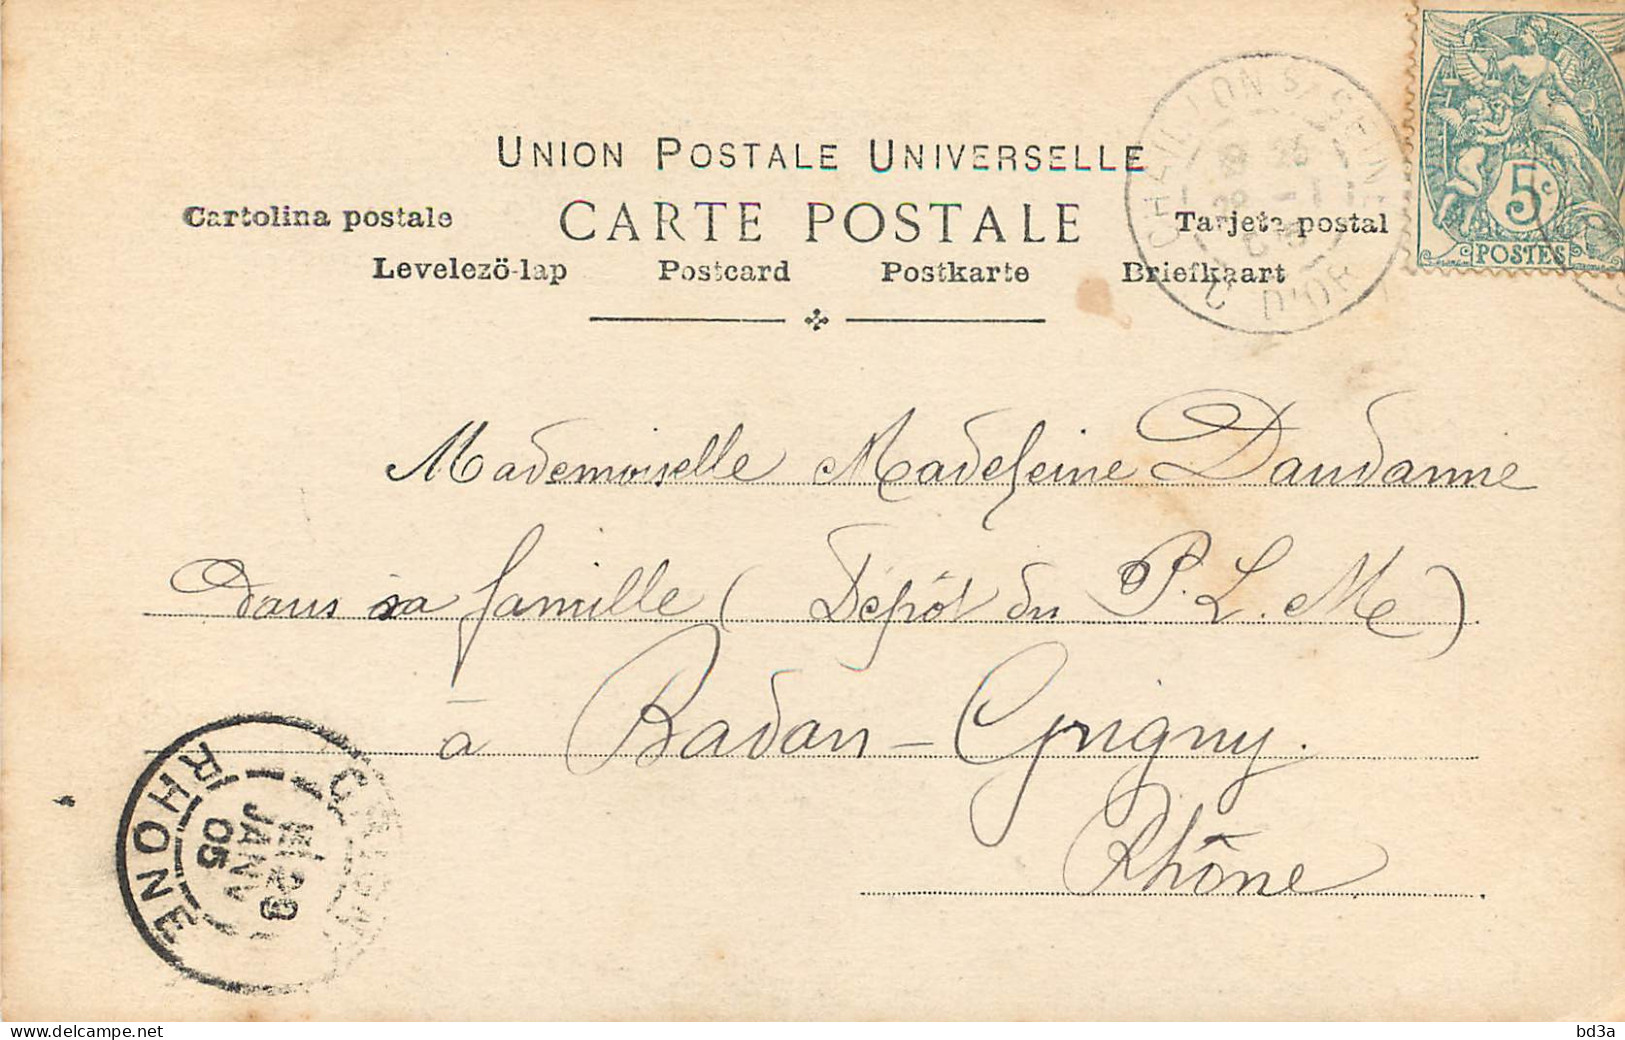 UNION POSTALE UNIVERSELLE
Cartolina postale CARTE POSTALE Tarjeta postal
Levelezö-lap Postcard Postkarte Briefkaart
CHATILLON S/ SEINE
9 25
28 - 1
05
COTE D'OR
5c
POSTES
Mademoiselle Madeleine Daudanne
Dans sa famille (Dépôt du P. L. M)
à Badan - Grigny.
Rhône
GRIGNY
RHONE
29
JANV
05
delcampe.net
bd3a